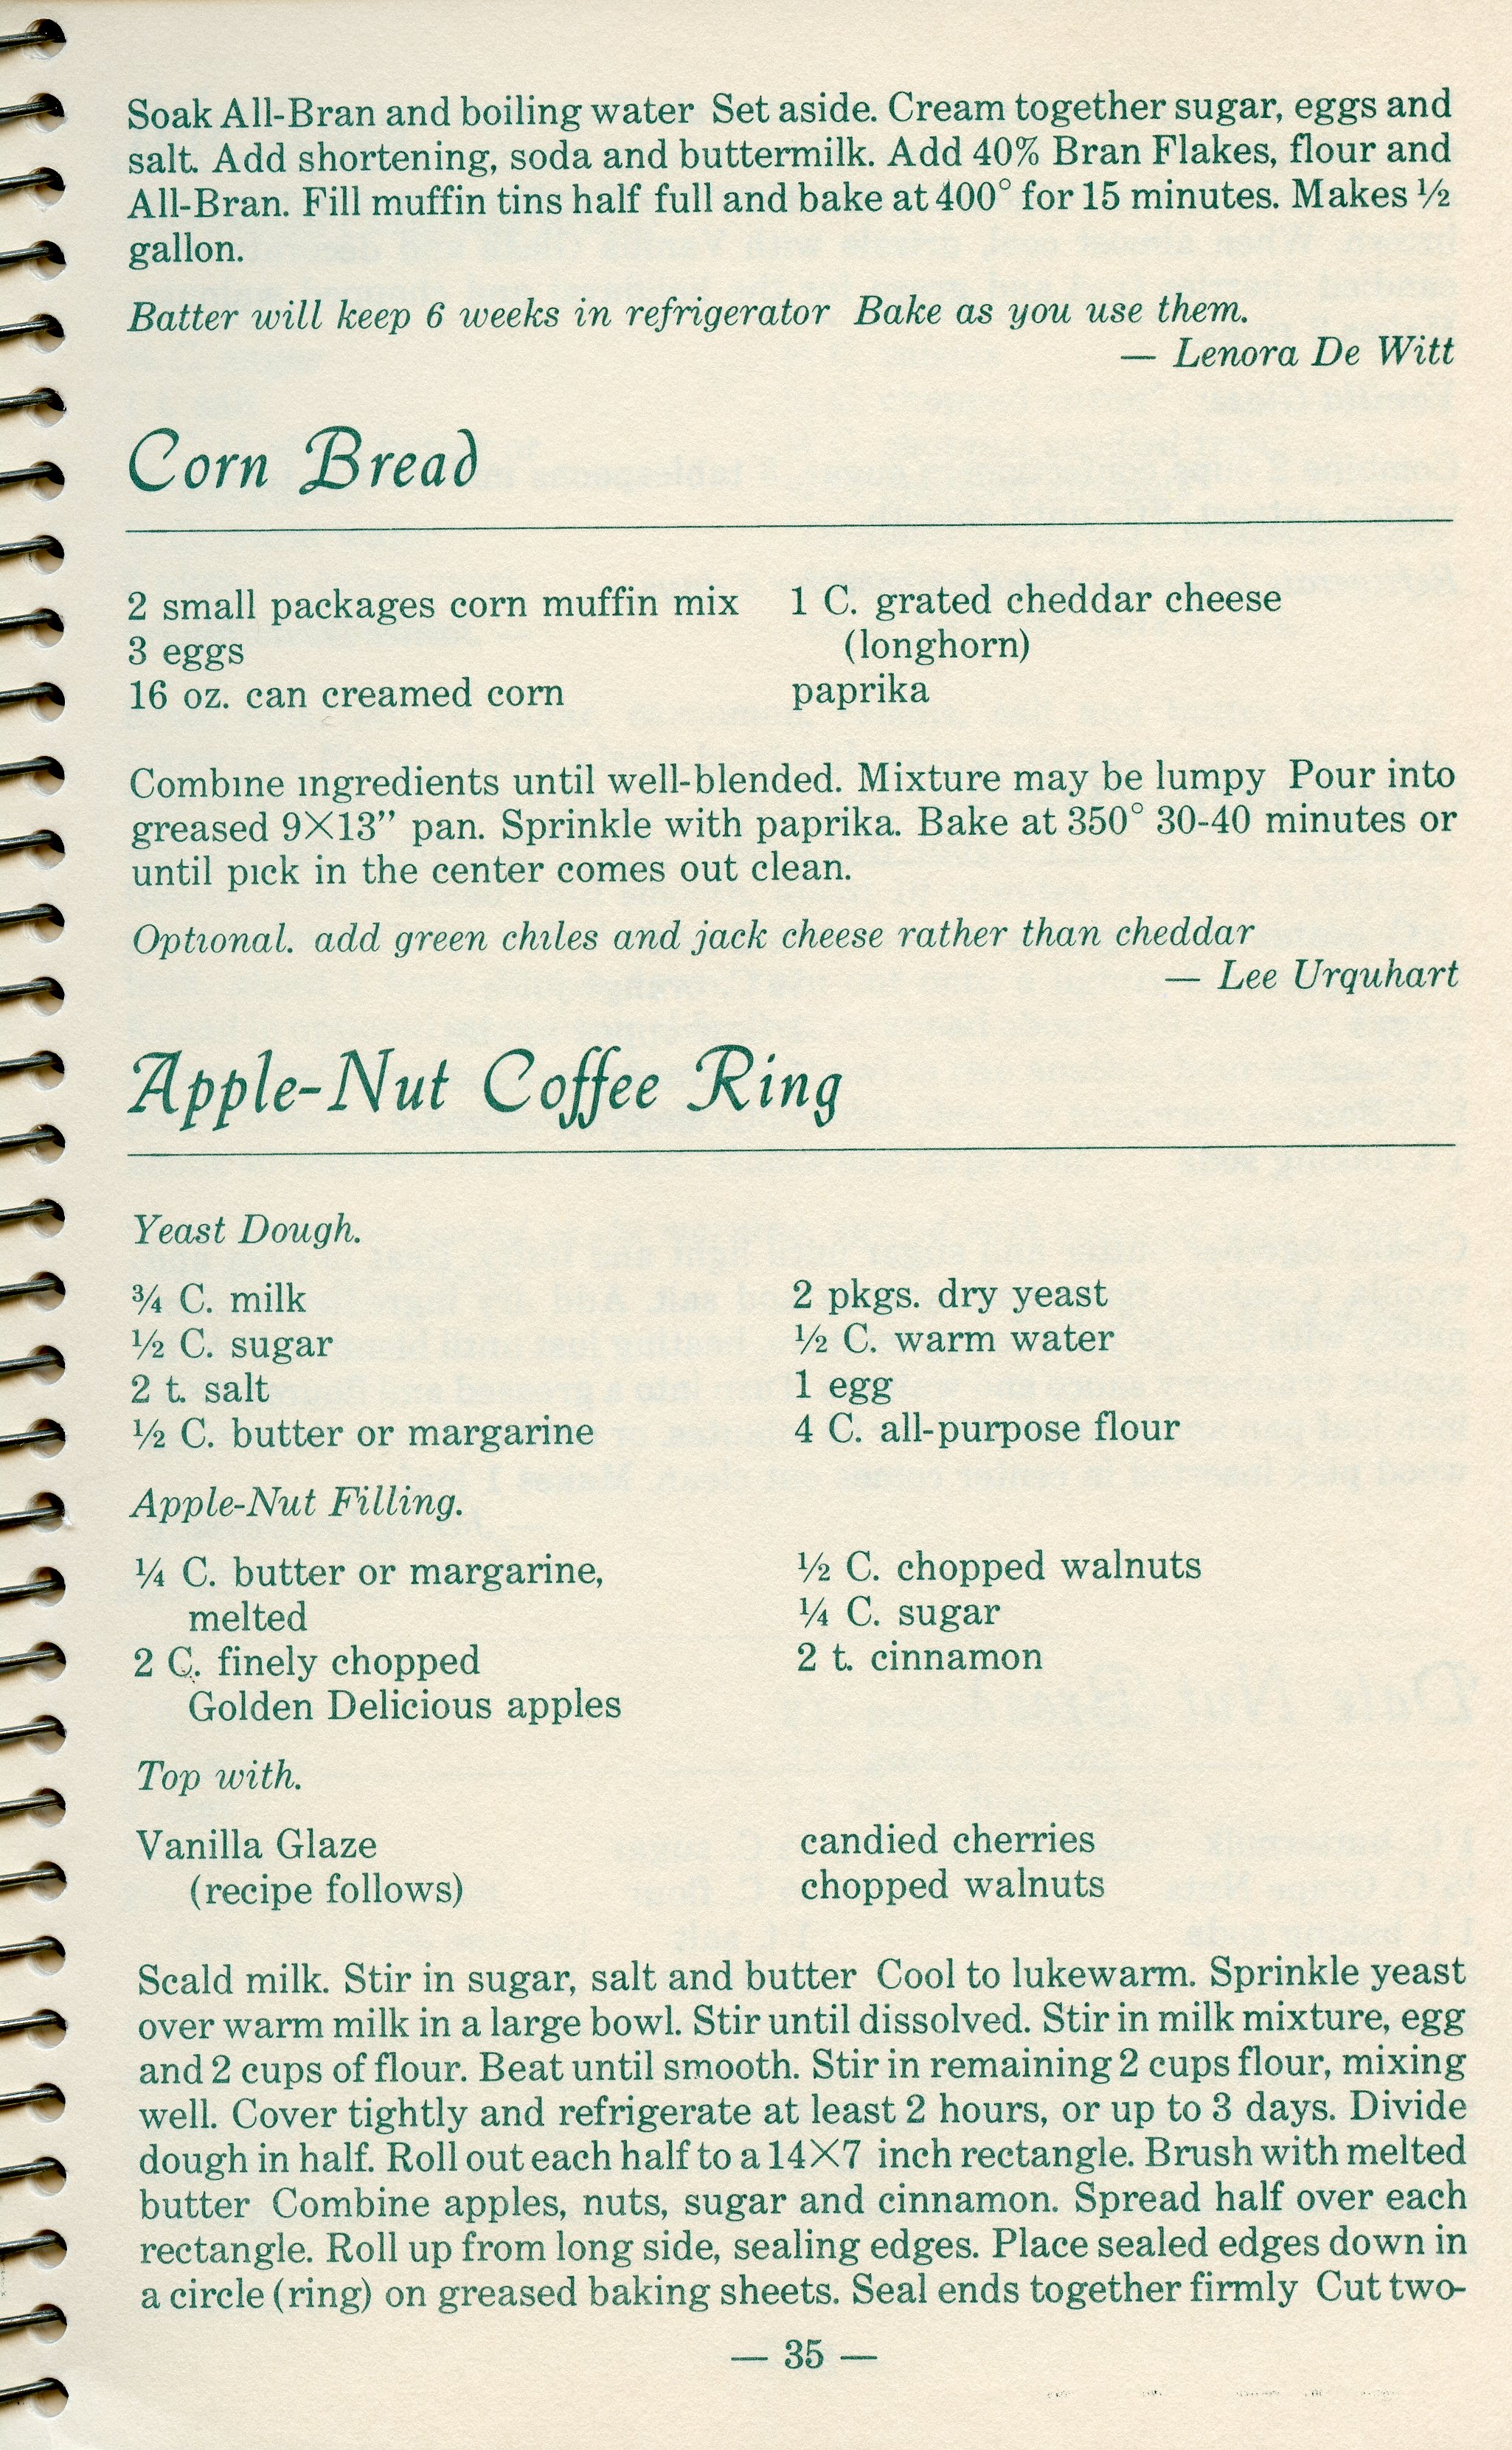 Soak All-Bran and boiling water Set aside. Cream together sugar, eggs and
salt. Add shortening, soda and buttermilk. Add 40% Bran Flakes, flour and
All-Bran. Fill muffin tins half full and bake at 400° for 15 minutes. Makes ½
gallon.
Batter will keep 6 weeks in refrigerator Bake as you use them.
— Lenora De Witt
Corn Bread
2 small packages corn muffin mix
3 eggs
16 oz. can creamed corn
1 C. grated cheddar cheese
(longhorn)
paprika
Combine ingredients until well-blended. Mixture may be lumpy Pour into
greased 9×13” pan. Sprinkle with paprika. Bake at 350° 30-40 minutes or
until pick in the center comes out clean.
Optional. add green chiles and jack cheese rather than cheddar
— Lee Urquhart
Apple-Nut Coffee Ring
Yeast Dough.
¾ C. milk
½ C. sugar
2 t. salt
½ C. butter or margarine
2 pkgs. dry yeast
½ C. warm water
1 egg
4 C. all-purpose flour
Apple-Nut Filling.
¼ C. butter or margarine,
melted
2 C. finely chopped
Golden Delicious apples
½ C. chopped walnuts
¼ C. sugar
2 t. cinnamon
Top with.
Vanilla Glaze
(recipe follows)
candied cherries
chopped walnuts
Scald milk. Stir in sugar, salt and butter Cool to lukewarm. Sprinkle yeast
over warm milk in a large bowl. Stir until dissolved. Stir in milk mixture, egg
and 2 cups of flour. Beat until smooth. Stir in remaining 2 cups flour, mixing
well. Cover tightly and refrigerate at least 2 hours, or up to 3 days. Divide
dough in half. Roll out each half to a 14×7 inch rectangle. Brush with melted
butter Combine apples, nuts, sugar and cinnamon. Spread half over each
rectangle. Roll up from long side, sealing edges. Place sealed edges down in
a circle (ring) on greased baking sheets. Seal ends together firmly Cut two-
— 35 —